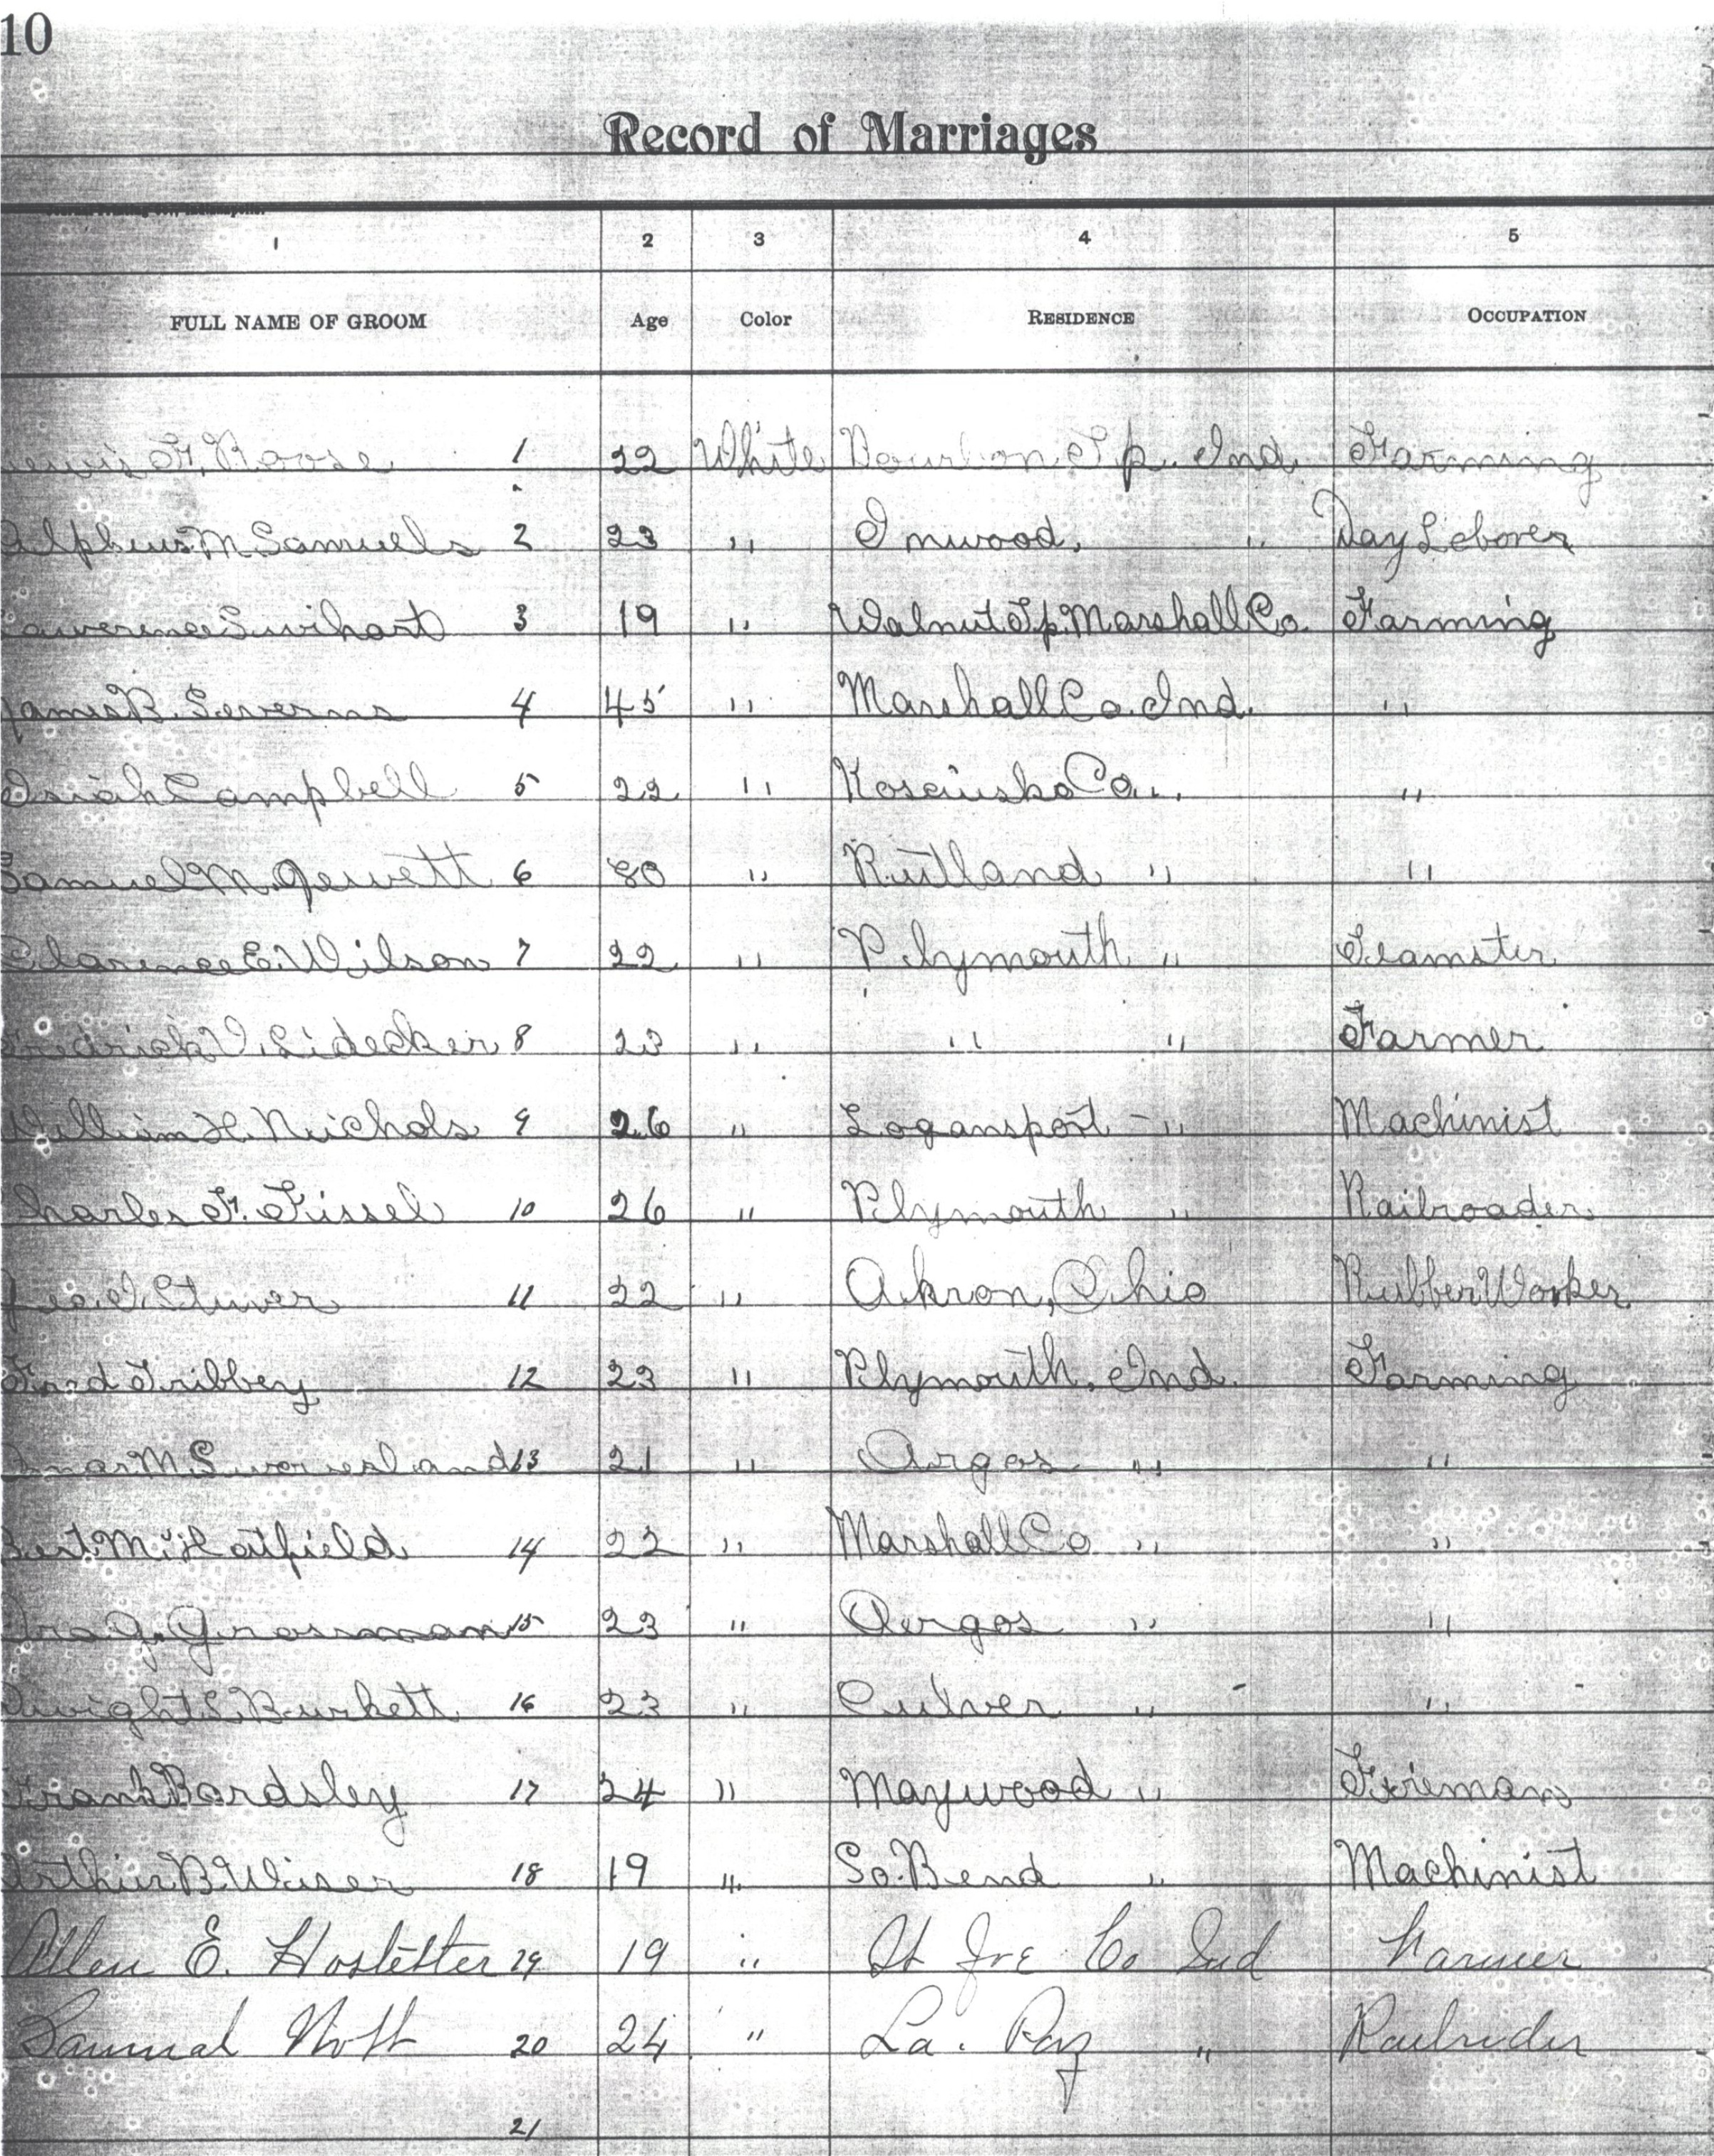 10
Record of Marriages
1 2 3 4 5
FULL NAME OF GROOM Age Color RESIDENCE OCCUPATION
F. Roose 1 22 White Bourbon Tp. Ind. Farming
Alpheus M Samuels 2 23 " Inwood, " Day Laborer
Lawerence Swihart 3 19 " Walnut Tp. Marshall Co. Farming
James B. Severns 4 45 " Marshall Co. Ind. "
Isiah Campbell 5 22 " Kosciusko Co. " "
Samuel M. Jewett 6 80 " Rutland " "
Clarence E. Wilson 7 22 " Plymouth " Teamster
Fredrick V. Lidecker 8 23 " " " Farmer
William H. Nichols 9 26 " Logansport - " Machinist
Charles F. Fissel 10 26 " Plymouth " Railroader
Geo. I. Stuver 11 22 " Akron, Ohio Rubber Worker
Fred Tribbey 12 23 " Plymouth, Ind. Farming
Omar M. 13 21 " Argos " "
Bert M. Hatfield 14 22 " Marshall Co " "
Ira J. Grossman 15 23 " Argos " "
Dwight L. Burkett 16 23 " Culver " "
Frank Bardsley 17 24 " Maywood " Fireman
Arthur B. Wiser 18 19 " So. Bend " Machinist
Allen E. Hostetter 19 19 " St Joe Co Ind Farmer
Samual 20 24 " La. Paz "
21